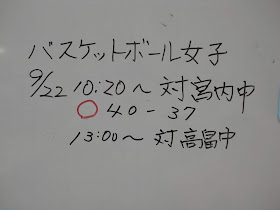 バスケットボール女子
9/22 10:20～ 対宮内中
○ 40-37
13:00～ 対高畠中